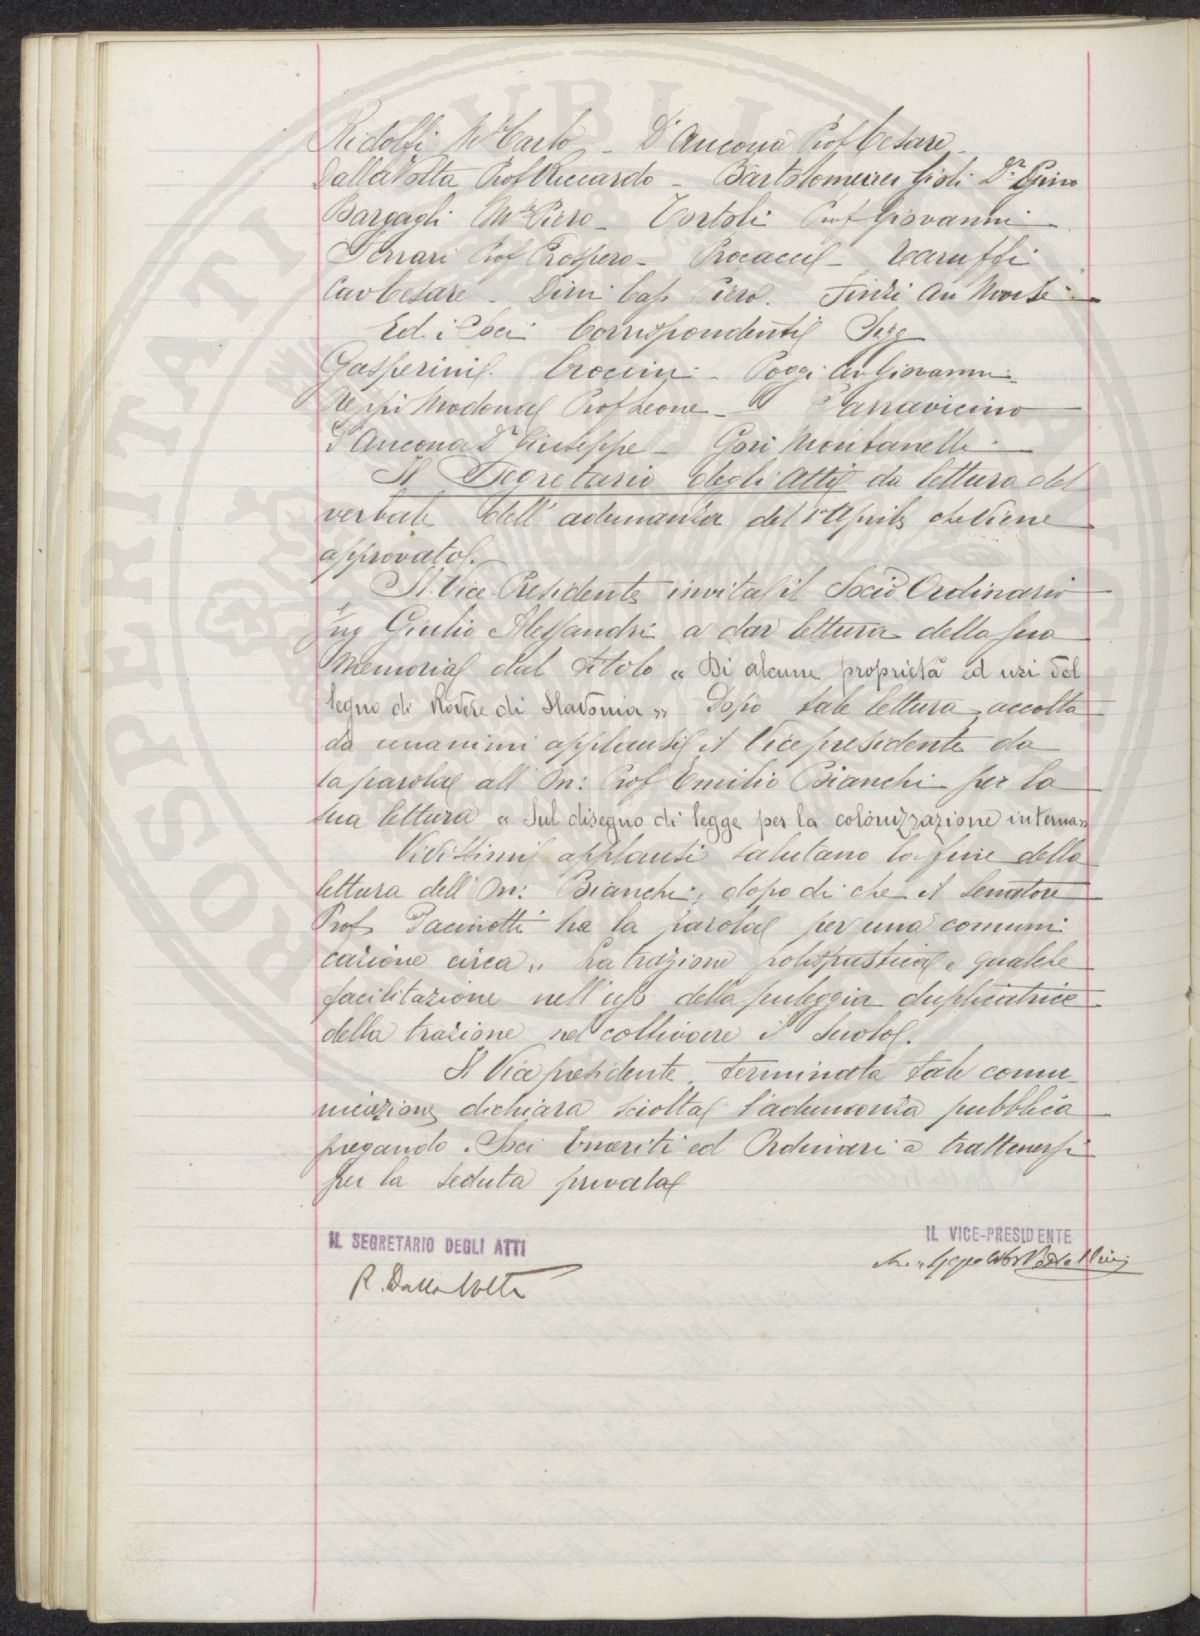 Ridolfi Mse Carlo - D'Ancona Prof Cesare -
Dalla Volta Prof Riccardo - Bartolommei Gioli Dr Gino
Bargagli Mse Piero - Tortoli Prof Giovanni -
Ferrari Prof Prospero - Procacci - Taruffi
Cav Cesare - Dini Cap Piero. Finzi Avv Moisè -
Ed i Soci Corrispondenti Sigg
Gasperini - Crocini - Poggi Cav Giovanni -
Neppi Modona Prof Leone - Parravicino
D'Ancona Dr Giuseppe - Gori Montanelli -
Il Segretario degli Atti da lettura del
verbale dell'adunanza del 1° Aprile che viene
approvato.
Il Vice Presidente invita il Socio Ordinario
Ing Giulio Alessandri a dar lettura della sua
Memoria dal titolo « Di alcune proprietà ed usi del
legno di Rovere di Slavonia » Dopo tale lettura, accolta
da unanimi applausi il Vicepresidente da
la parola all'On: Prof Emilio Bianchi per la
sua lettura « Sul disegno di legge per la colonizzazione interna»
Vivissimi applausi salutano la fine della
lettura dell'On: Bianchi, dopo di che il Senatore
Prof Pacinotti ha la parola per una comuni
cazione circa „ La trazione polispastica e qualche
facilitazione nell'uso della puleggia duplicatrice
della trazione nel coltivare il suolo.
Il Vice presidente, terminata tale comu
nicazione dichiara sciolta l'adunanza pubblica
pregando i Soci Emeriti ed Ordinari a trattenersi
per la seduta privata
IL SEGRETARIO DEGLI ATTI
IL VICE-PRESIDENTE
R. Dalla Volta
PROSPERITATI PUBLI